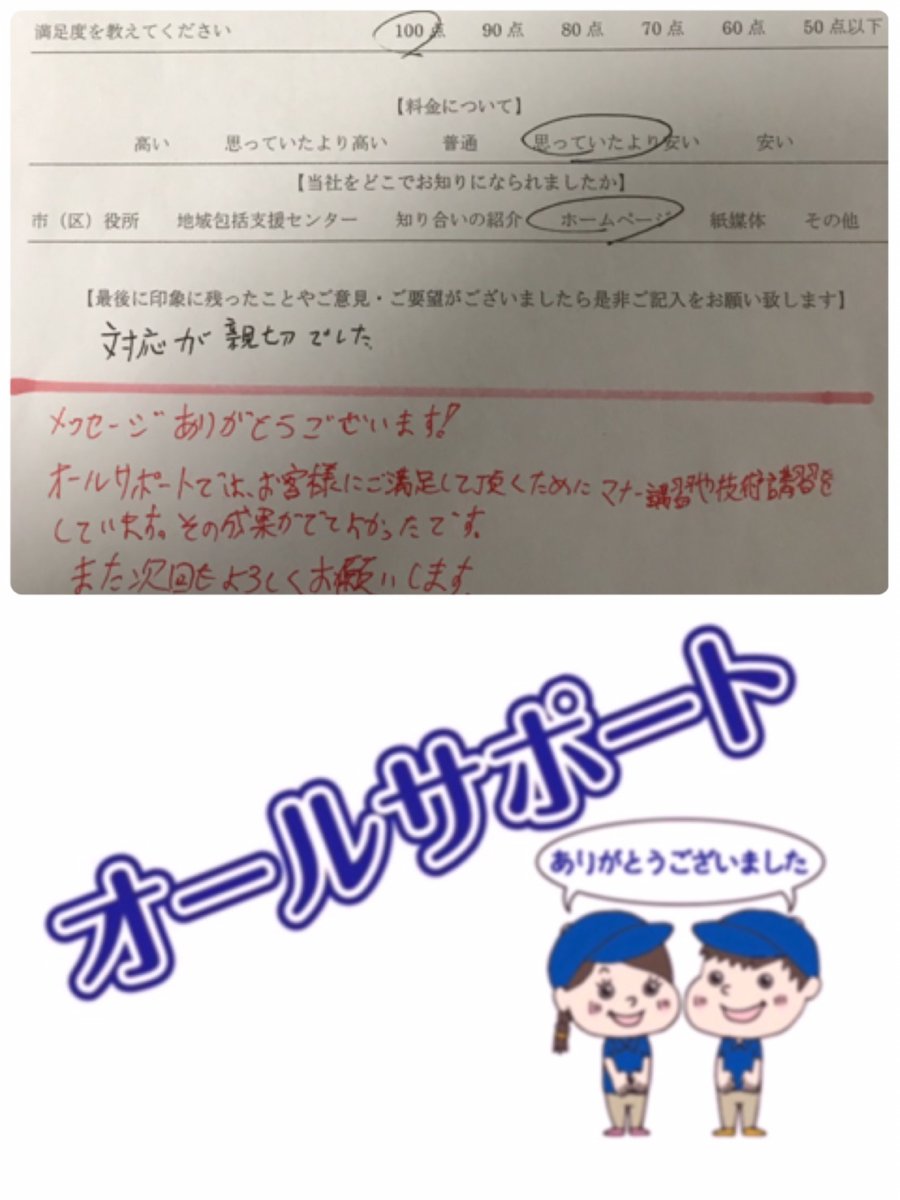 満足度を教えてください 100点 90点 80点 70点 60点 50点以下
【料金について】
高い 思っていたより高い 普通 思っていたより安い 安い
【当社をどこでお知りになられましたか】
市（区）役所 地域包括支援センター 知り合いの紹介 ホームページ 紙媒体 その他
【最後に印象に残ったことやご意見・ご要望がございましたら是非ご記入をお願い致します】
対応が親切でした
メッセージありがとうございます!
オールサポートでは、お客様にご満足して頂くためにマナー講習や技術講習を
しています。その成果がでてよかったです。
また次回もよろしくお願いします
オールサポート
ありがとうございました